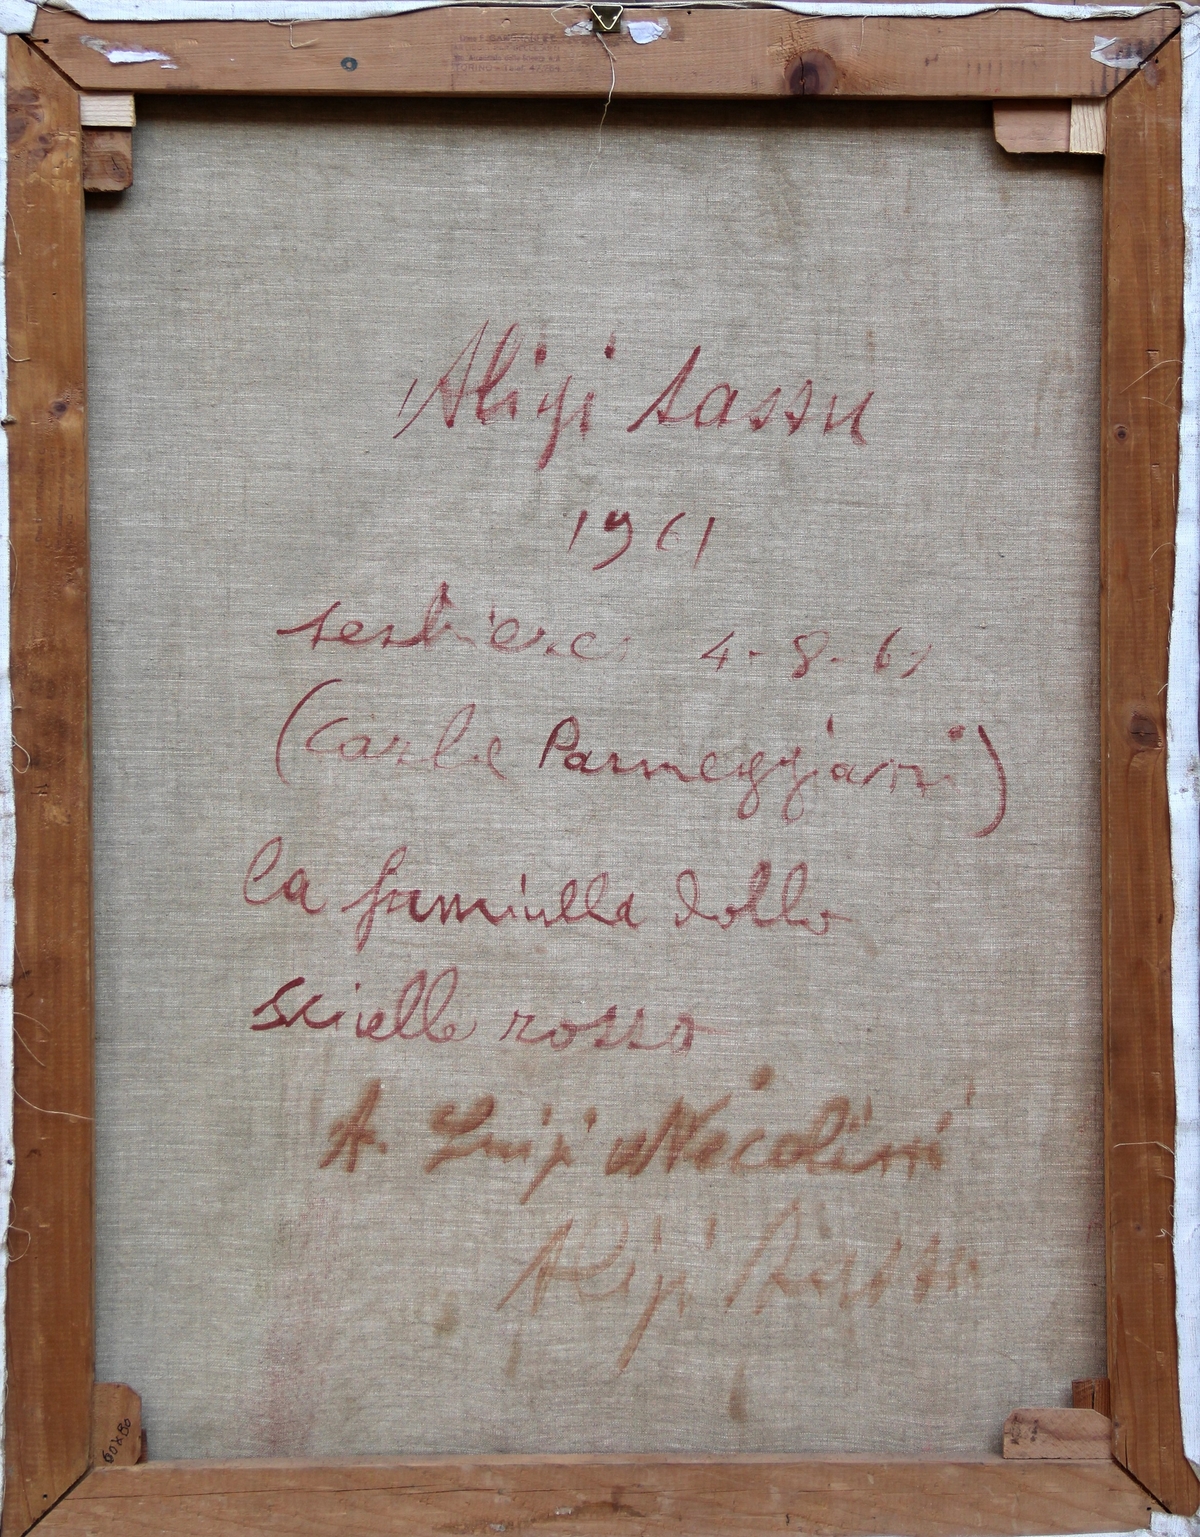 Aligi Sassu
1961
sestriere 4-8-61
(Carla Parmeggiani)
la fanciulla dallo
scialle rosso
A. Luigi Nicolini
Aligi Sassu
60x80